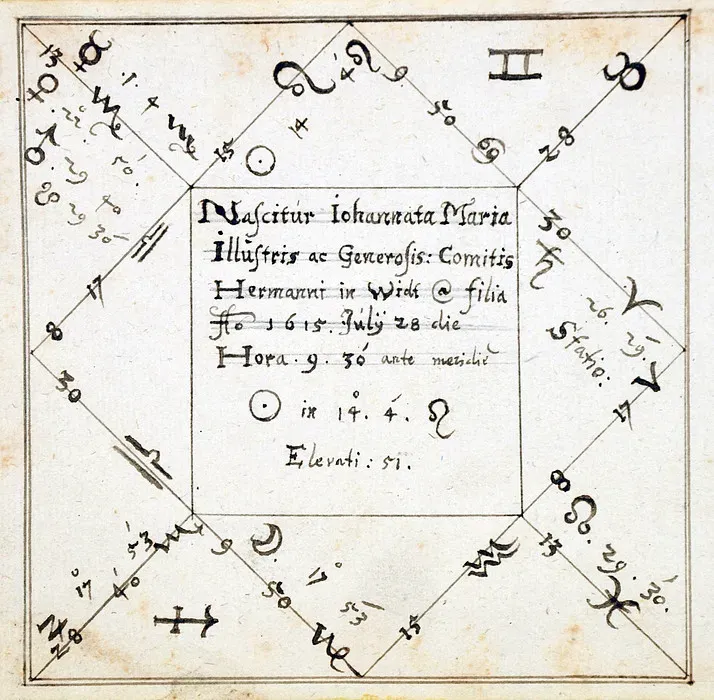 Nascitúr Iohannata Maria
Illŭstris ac Generosis: Comitis
Hermanni in Widt @ filia
Aō 1615. Júlÿ 28 die
Hora . 9 . 30 ante meridiē
☉ in 14°. 4´. ♌
Elevati : 51.
♌ 4 ♌ 9 50 ♋
♊
♉ 28
13 ☿ 1 4 ♍ 15
☉ 14
♀ 22 50
♂ 29 40
29 30
♎ 17 8
30 ♄
♈ 26. 29.
Statio:
♈ 17 8
30 ♎
☊ 29. 30.
13 ♓
♏ 9 ☽ 17° 53´
50 ♏
♃ 17° 53´
40 28
♐
♒ 15